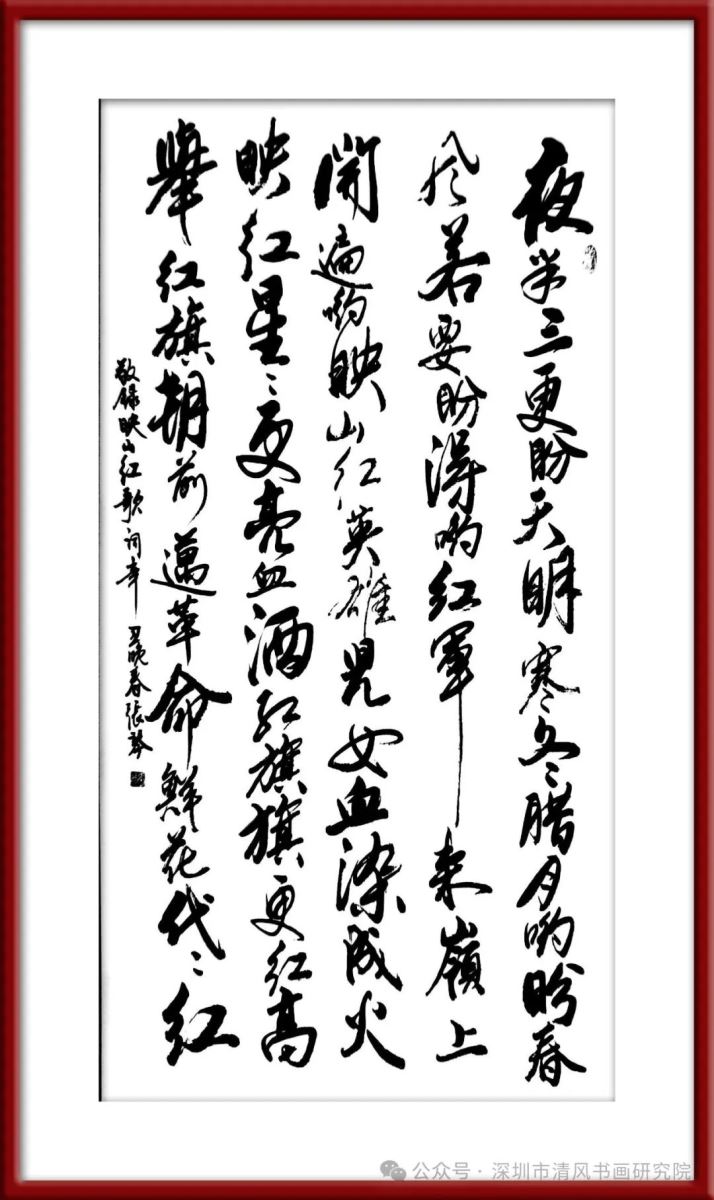 夜半三更盼天明寒冬腊月哟盼春
风若要盼得哟红军来嶺上
開遍哟映山红英雄児女血染成火
映红星〻更亮血洒红旗旗更红高
舉红旗朝前邁革命鲜花代〻红
敬録映山红歌词
春张
公众号·深圳市清风书画研究院